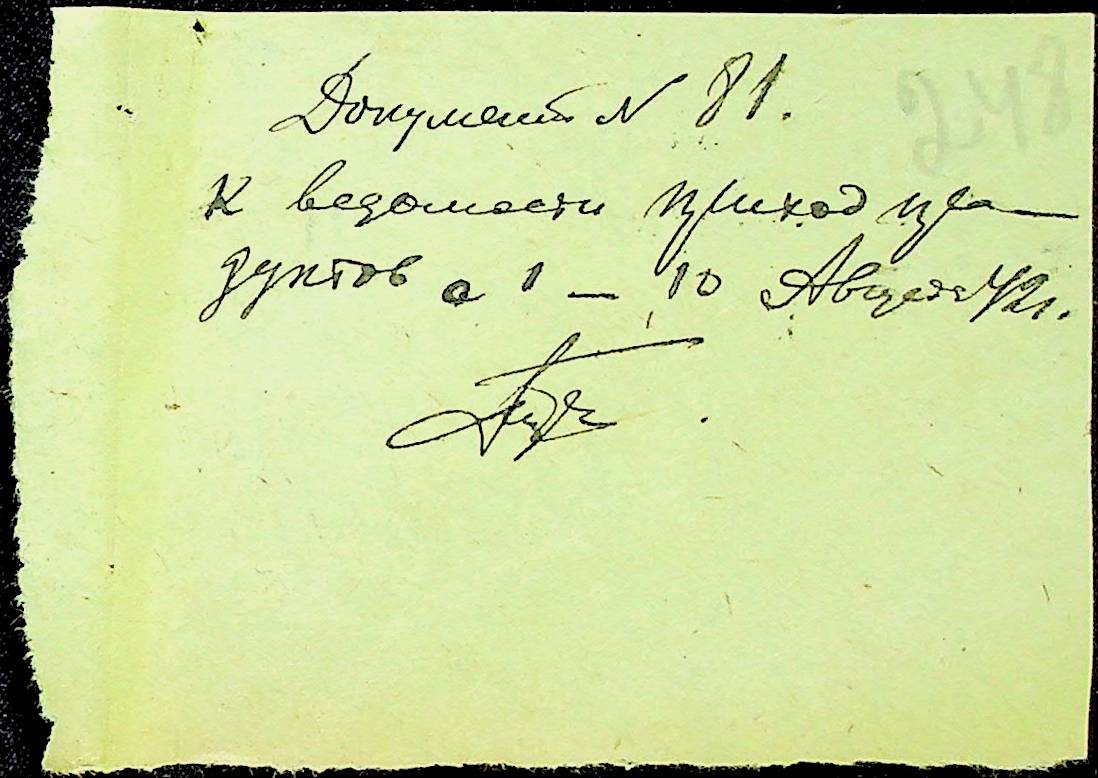 Документ N 81.
К ведомости приход про-
дуктов с 1 - 10 Августа 42г.